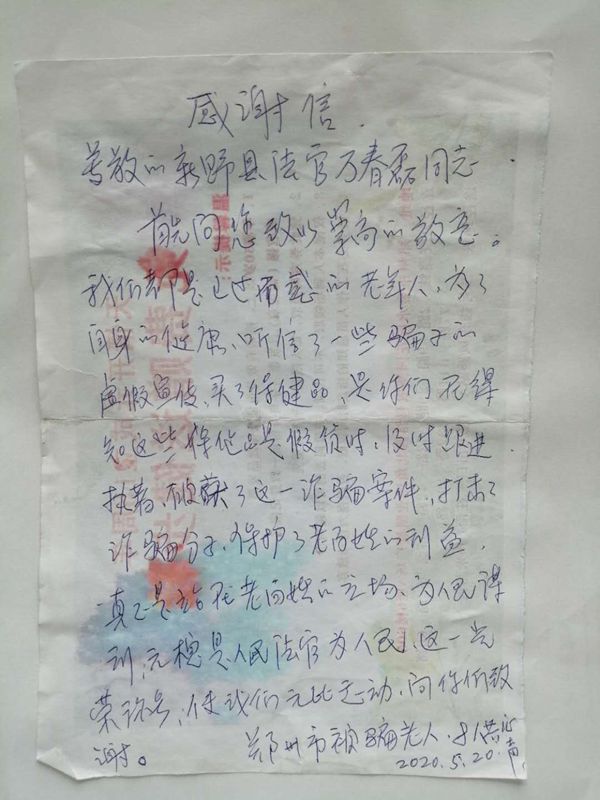 感谢信.
尊敬的新野县法官万春磊同志.
首先向您致以崇高的敬意。
我们都是已过百惑的老年人,为了
自身的健康、听信了一些骗子的
虚假宣传、买了保健品,是你们在得
知这些保健品是假货时,及时跟进
执著,破获了这一诈骗案件,打击了
诈骗分子、保护了老百姓的利益.
真正是站在老百姓的立场、为人民谋
利,无愧是人民法官为人民,这一光
荣称号,使我们无比感动,向你们致
谢。
郑州市被骗老人.
2020.5.20.